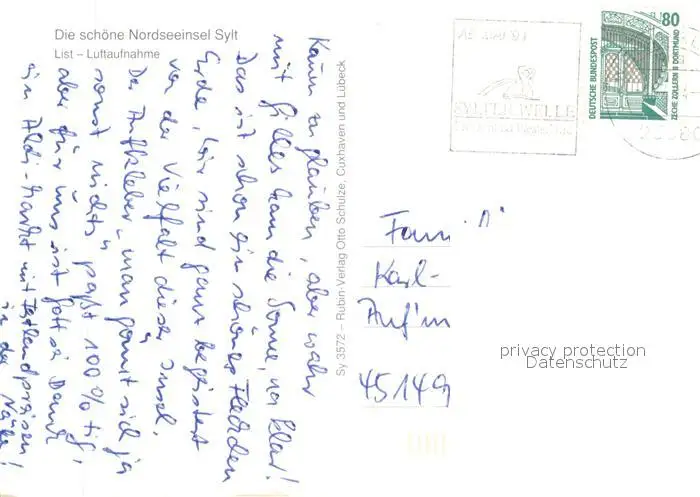 Die schöne Nordseeinsel Sylt
List – Luftaufnahme
Kaum zu glauben, aber wahr
mit Gilles kam die Sonne, na klar!
Das ist schon ein schönes Fleckchen
Erde, wir sind ganz begeistert
von der Vielfalt dieser Insel.
Der Aufkleber „man gönnt sich ja
sonst nichts" paßt 100%tig,
aber für uns ist Gott sei Dank
ein Aldi-Markt mit Festlandpreisen
in der Nähe!
Sy 3572 – Rubin-Verlag Otto Schulze, Cuxhaven und Lübeck
SYLTER WELLE
80
DEUTSCHE BUNDESPOST
ZECHE ZOLLERN II DORTMUND
Fam.
Karl-
Auf'm
45149
privacy protection
Datenschutz